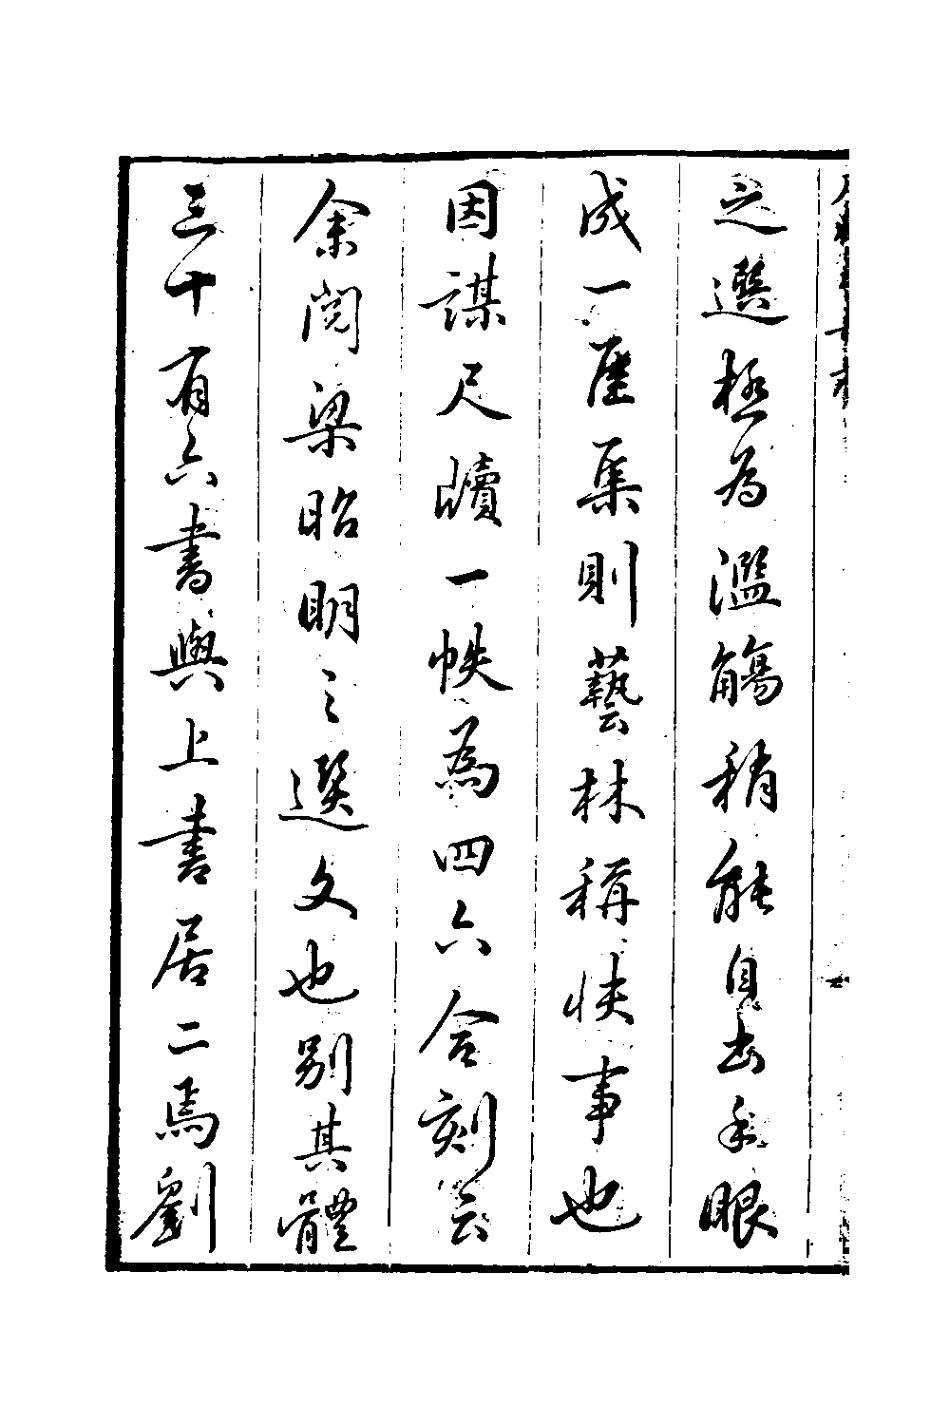 之選極為濫觴稍能自出手眼
成一集則藝林稱快事也
因謀尺牘一帙為四六合刻云
余閱梁昭明之選文也別其體
三十有六書與上書居二焉劉